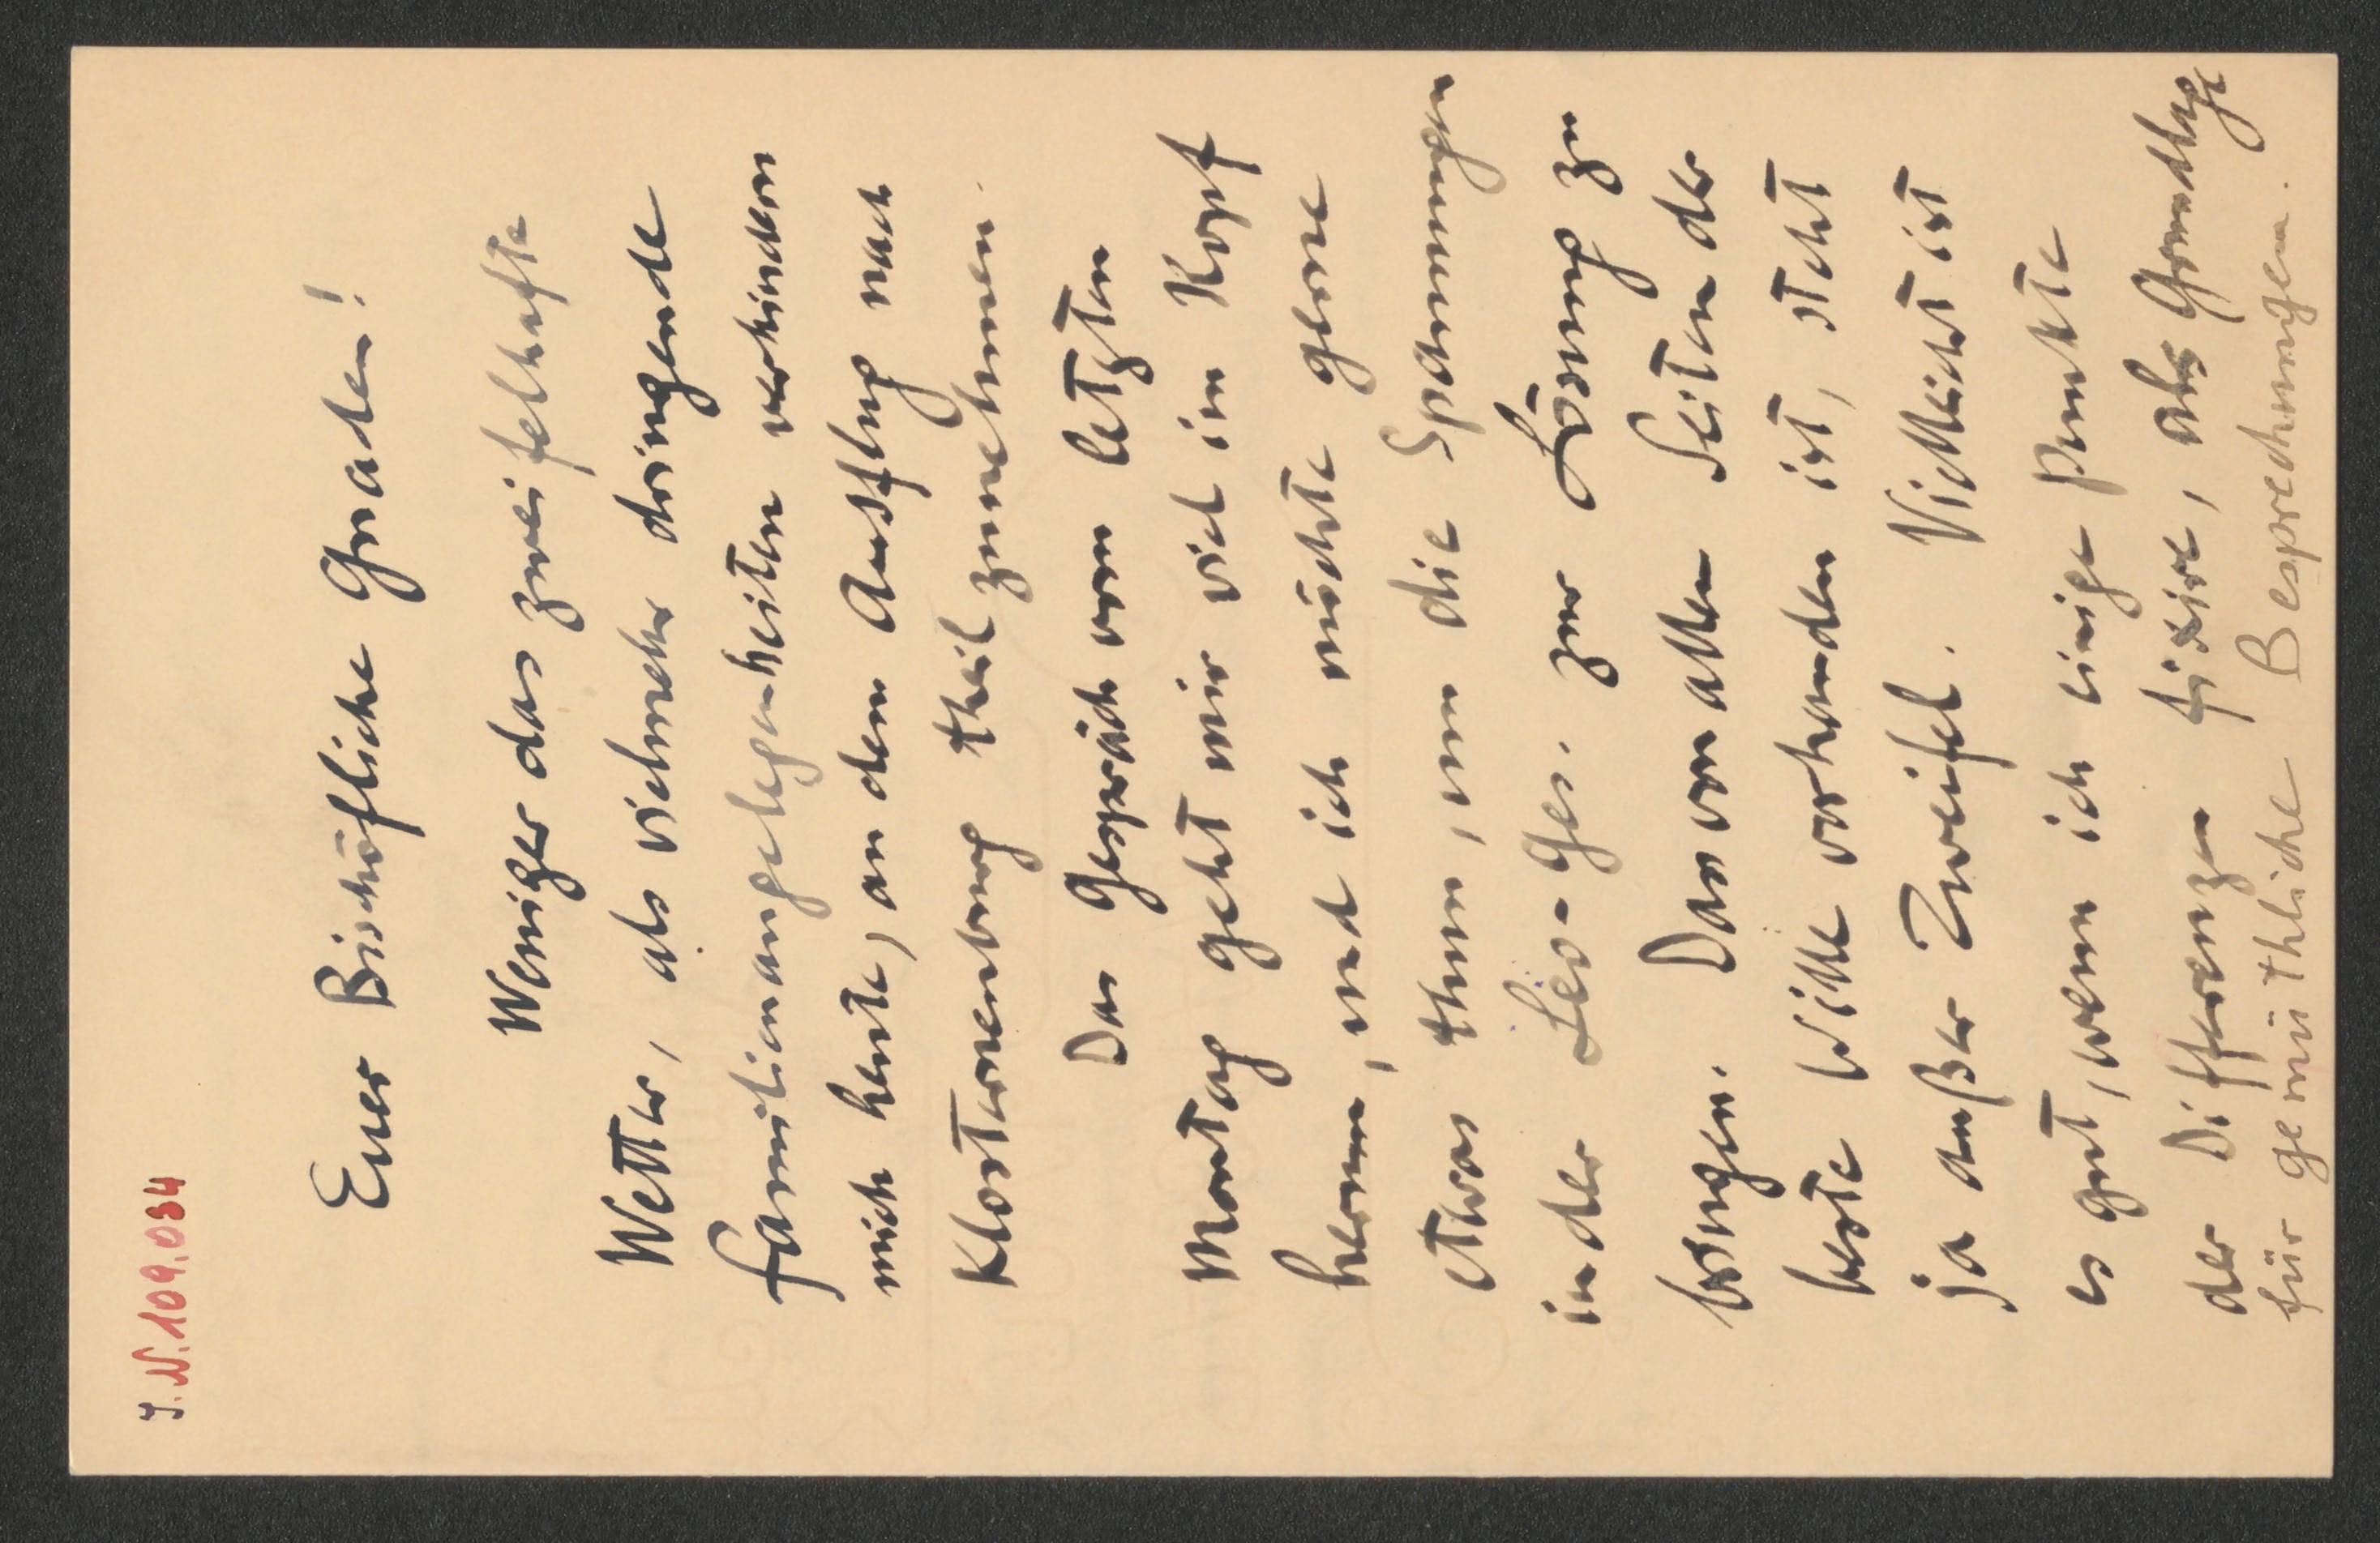 I.N. 109.034
Euer Bischöfliche Gnaden!
Weniger das zweifelhafte
Wetter, als vielmehr dringende
Familienangelegenheiten verhindern
mich heute, an dem Ausflug nach
Klosterneuburg theilzunehmen.
Das Gespräch vom letzten
Montag geht mir viel im Kopf
herum, und ich möchte gerne
etwas thun, um die Spannungen
in der Leo-Ges. zur Lösung zu
bringen. Das von allen Seiten der
beste Wille vorhanden ist, steht
ja außer Zweifel. Vielleicht ist
es gut, wenn ich einige Punkte
der Differenzen fixire, als Grundlage
für gemüthliche Besprechungen.